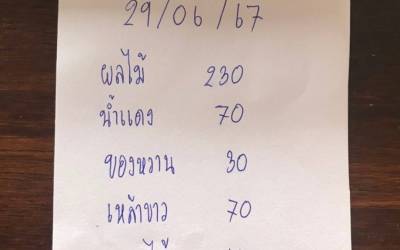 29/06/67
ผลไม้ 230
น้ำแดง 70
ของหวาน 30
เหล้าขาว 70